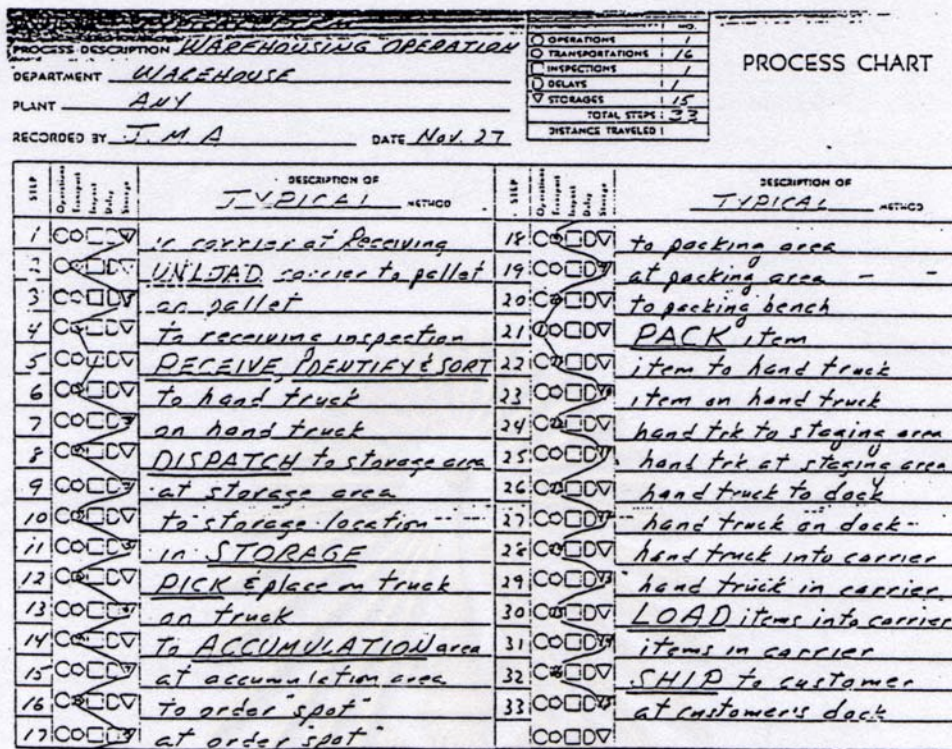 PROCESS DESCRIPTION WAREHOUSING OPERATION
DEPARTMENT WAREHOUSE
PLANT ANY
RECORDED BY J.M.A DATE Nov. 27
NO.
OPERATIONS 1
TRANSPORTATIONS 16
INSPECTIONS 1
DELAYS 1
STORAGES 15
TOTAL STEPS 33
DISTANCE TRAVELED
PROCESS CHART
STEP Operations Transport Inspect Delay Storage DESCRIPTION OF TYPICAL METHOD
1 in carrier at Receiving
2 UNLOAD carrier to pallet
3 on pallet
4 to receiving inspection
5 RECEIVE, IDENTIFY & SORT
6 to hand truck
7 on hand truck
8 DISPATCH to storage area
9 at storage area
10 to storage location
11 in STORAGE
12 PICK & place on truck
13 on truck
14 to ACCUMULATION area
15 at accumulation area
16 to order "spot"
17 at order "spot"
STEP Operations Transport Inspect Delay Storage DESCRIPTION OF TYPICAL METHOD
18 to packing area
19 at packing area
20 to packing bench
21 PACK item
22 item to hand truck
23 item on hand truck
24 hand trk to staging area
25 hand trk at staging area
26 hand truck to dock
27 hand truck on dock
28 hand truck into carrier
29 hand truck in carrier
30 LOAD items into carrier
31 items in carrier
32 SHIP to customer
33 at customer's dock